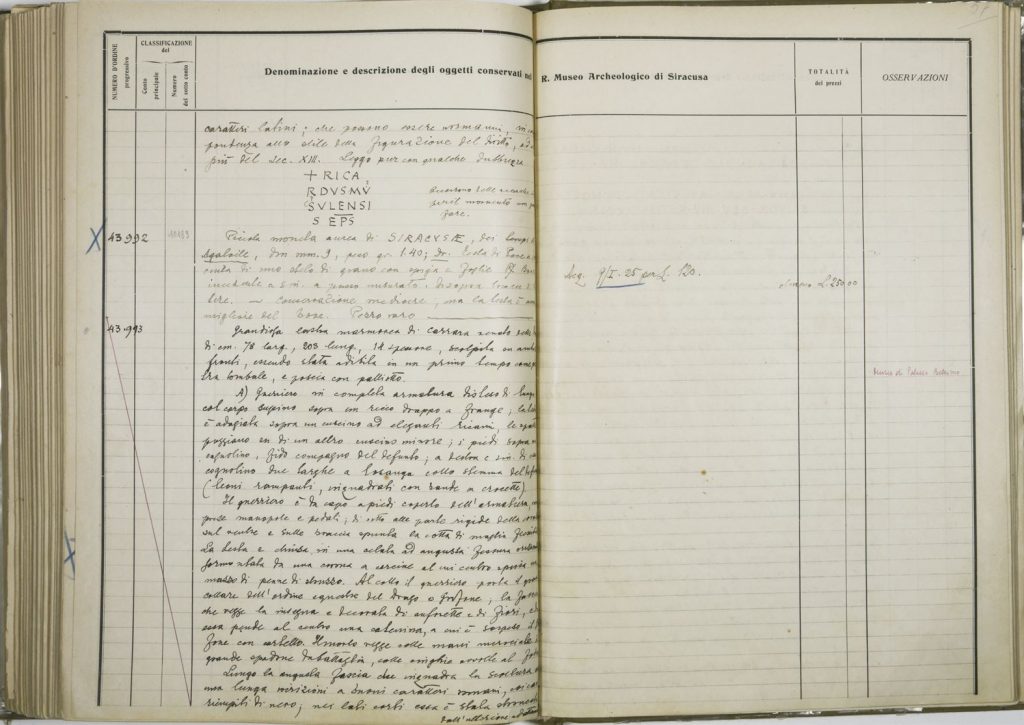 NUMERO D'ORDINE progressivo
CLASSIFICAZIONE del
Conto principale
Numero del sotto conto
Denominazione e descrizione degli oggetti conservati nel R. Museo Archeologico di Siracusa
TOTALITÀ dei prezzi
OSSERVAZIONI
caratteri latini; che possono essere normanni, in
pondenza allo stile della figurazione del
più del sec. XIII. Leggo pur con qualche dubbiezza
+ RICA
RDVSMV
SVLENSI
S EPS
Occorrono delle
per il momento non
fare.
43992
Piccola moneta aurea di SIRACVSÆ, dei tempi
Agatocle, diam mm. 9, peso gr. 1.40; Dr. Testa di
di uno stelo di grano con spiga e foglie
incavale a sin. a passo misurato. Disopra tracce di
re. — Conservazione mediocre, ma la testa è
migliore del Cose. Pezzo raro
Acq. 9/I-25 per L.
L. 250.00
43993
Grandiosa lastra marmorea di carrara venato
di cm. 78 larg., 203 lung., 14 spessore, scolpita su
fronti, essendo stata adibita in un primo tempo come
tra tombale, e poscia con palliotto.
Museo di Palazzo Bellomo
A) Guerriero in completa armatura disteso di lungo
col corpo supino sopra un ricco drappo a frange; la
è adagiata sopra un cuscino ad eleganti ricami, le
poggiano su di un altro cuscino minore; i piedi sopra
cagnolino, fido compagno del defunto; a destra e sin. di
cagnolino due targhe a losanga collo stemma del
(leoni rampanti, inquadrati con bande a crocette)
Il guerriero è da capo a piedi coperto dell'armatura,
manopole e pedali; di sotto alle parte rigide della
sul ventre e sulle braccia spunta la cotta di maglia
La testa è chiusa in una celata ad angusta fessura
formontata da una corona a cercine al cui centro
mazzo di penne di struzzo. Al collo il guerriero porta il
collare dell'ordine equestre del Drago o Grifone; la
che regge la insegna è decorata di anforette e di fiori, e
essa pende al centro una catenina, a cui è sospeso il
fone con cartello. Il morto regge colle mani
grande spadone da battaglia, colle cinghie avvolte al
Lungo la angusta fascia che inquadra la scultura
una lunga iscrizione a buoni caratteri romani,
riempiti di nero; nei lati corti essa è stata